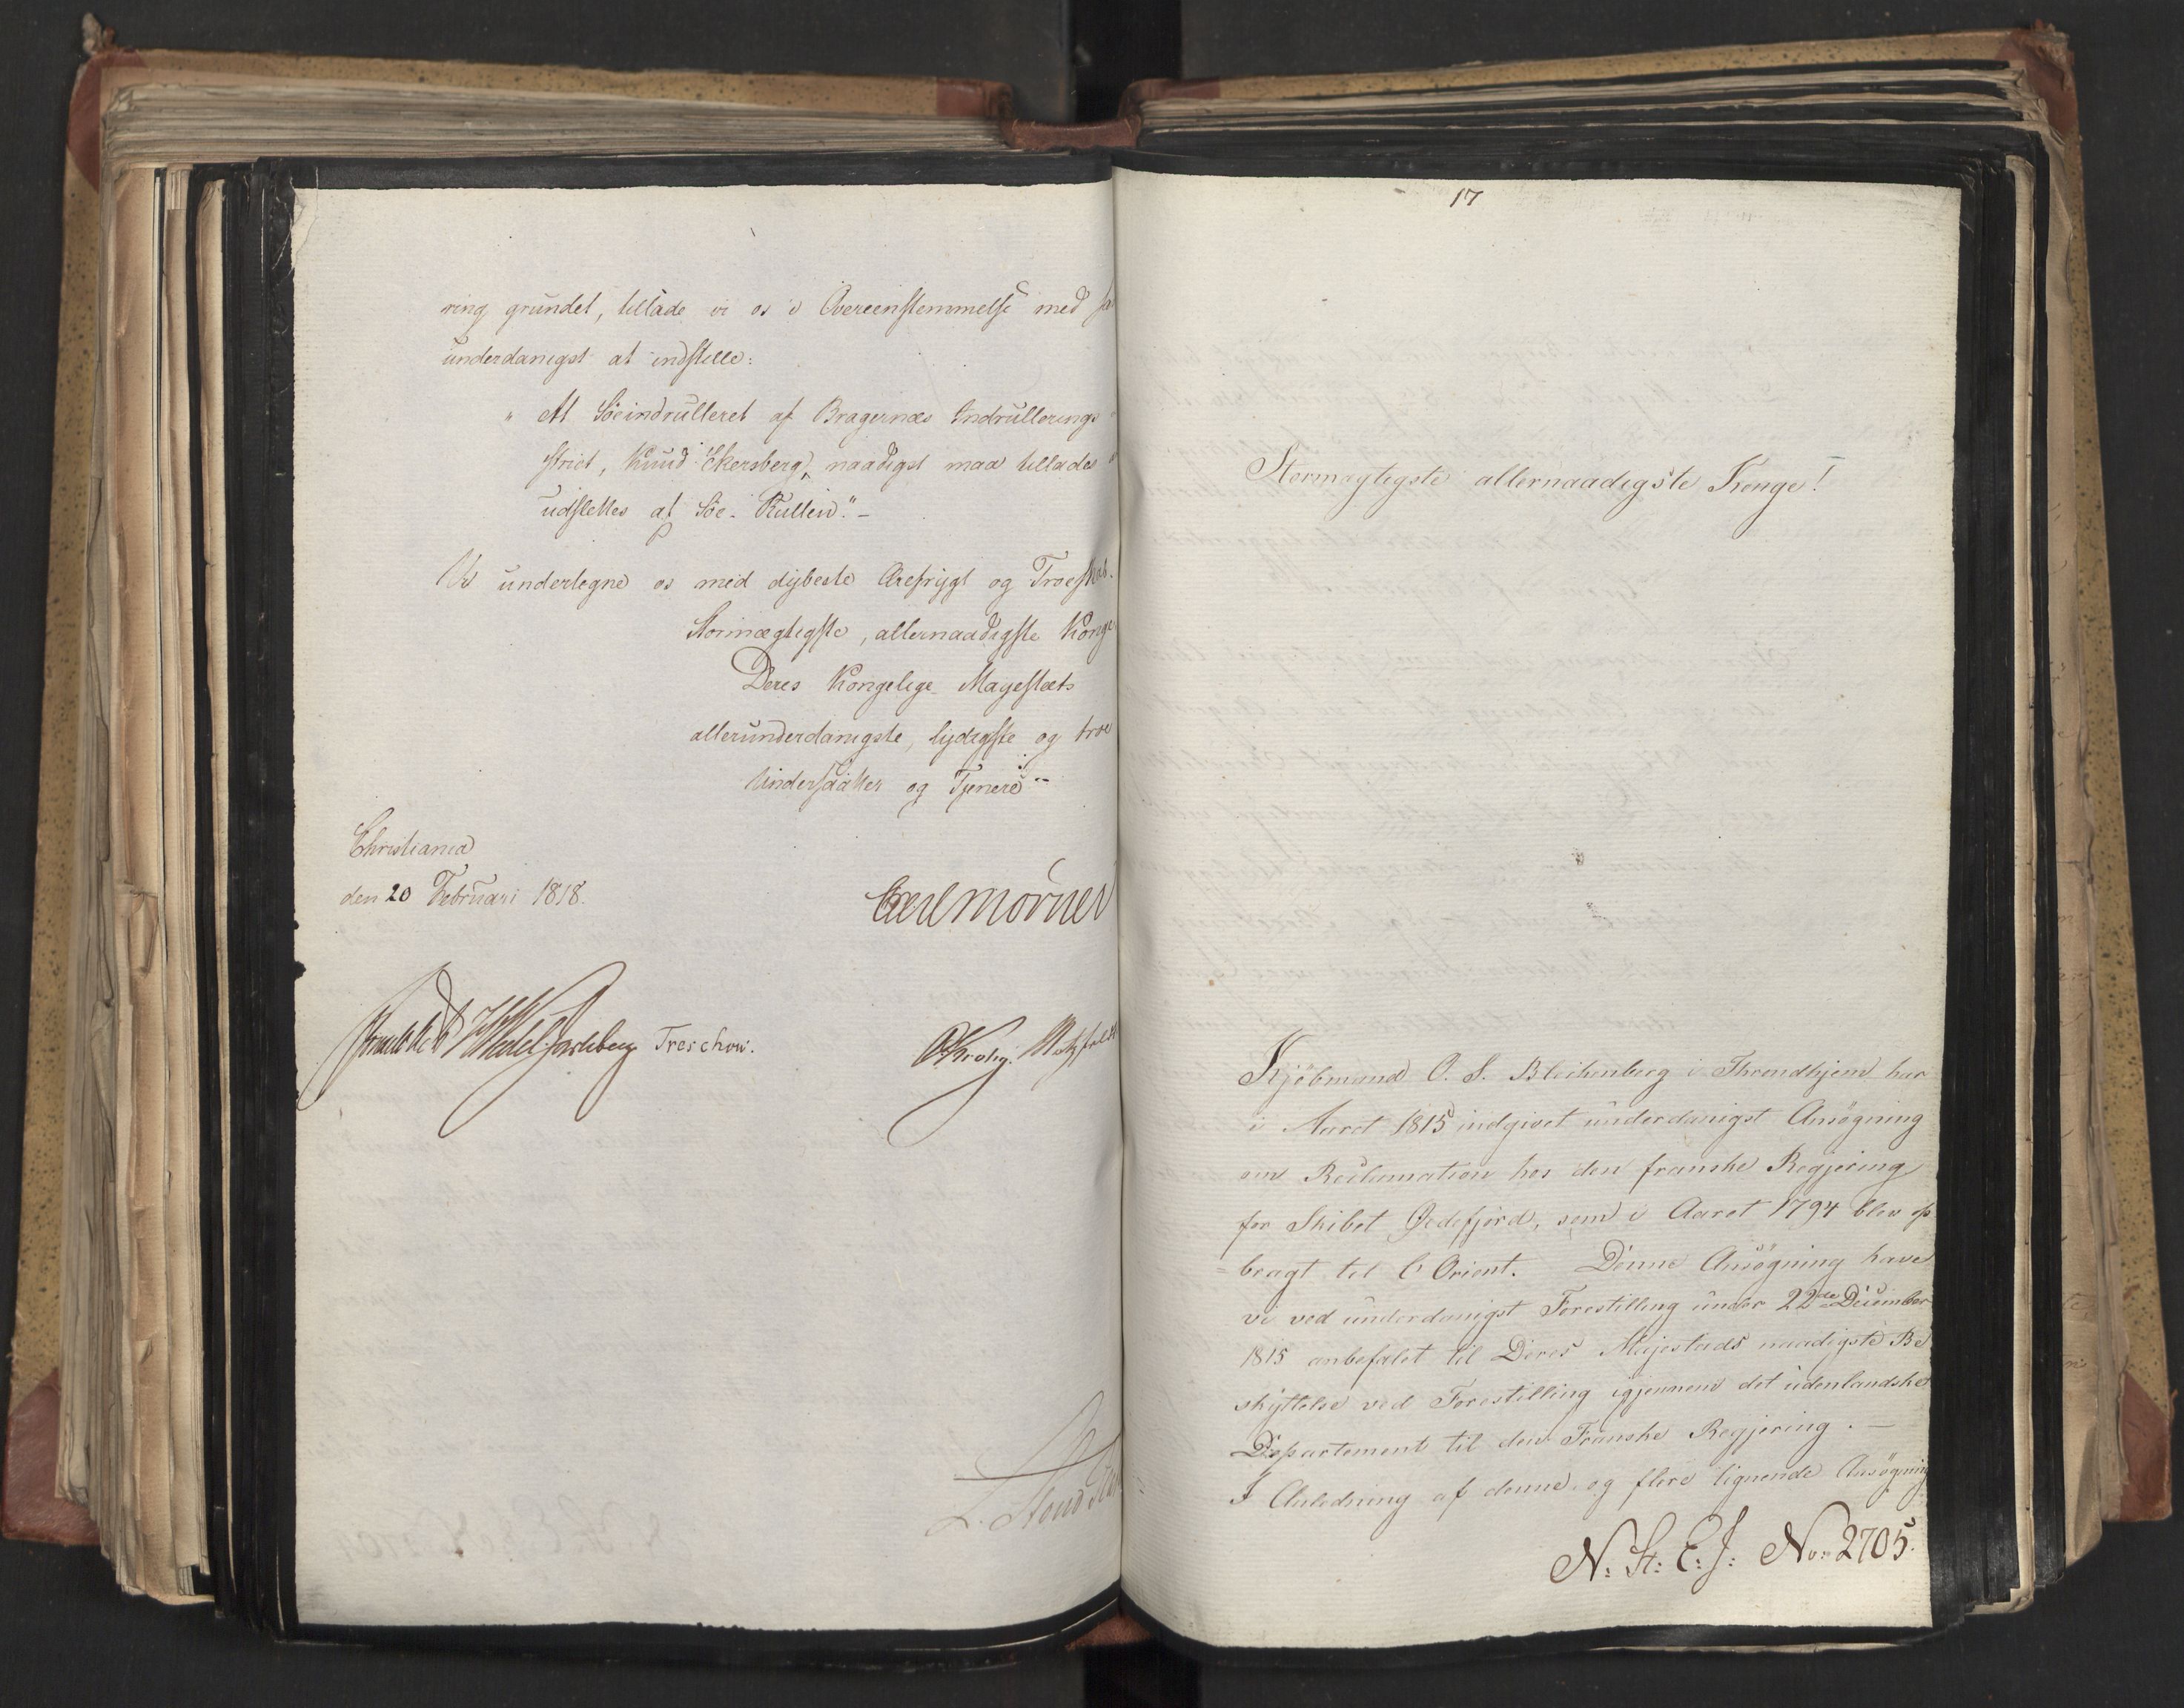 ring grundet, tillade vi os i Overeensstemmelse med
underdanigst at indstille:
" At Söeindrulleret af Bragernæs Indrullerings
strict, Knud Ekersberg, naadigst maa tillades
udslettes af Söe-Rullen." -
Vi undertegne os med dybeste Ærefrygt og Troeskab.
Stormægtigste, allernaadigste Konge
Deres Kongelige Mayestæts
allerunderdanigste, lydigste og troe
Undersaatter og Tjenere
Christiania
den 20 Februari 1818.
Carl Mörner
Wedel Jarlsberg Treschow.
Krohg. Motzfeldt
17
Stormægtigste allernaadigste Konge!
Kjöbmand O. S. Blichenberg i Throndhjem har
i Aaret 1815 indgivet underdanigst Ansögning
om Reclamation hos den franske Regjering
for Skibet Ördefjord, som i Aaret 1794 blev op
= bragt til l'Orient. Denne Ansögning have
vi ved underdanigst Forestilling under 22de December
1815 anbefalet til Deres Majestæds naadigste Be
skyttelse ved Forestilling igjennem det udenlandske
Departement til den Franske Regjering. -
I Anledning af denne og flere lignende Ansögning
N: St: E: J: No: 2705.